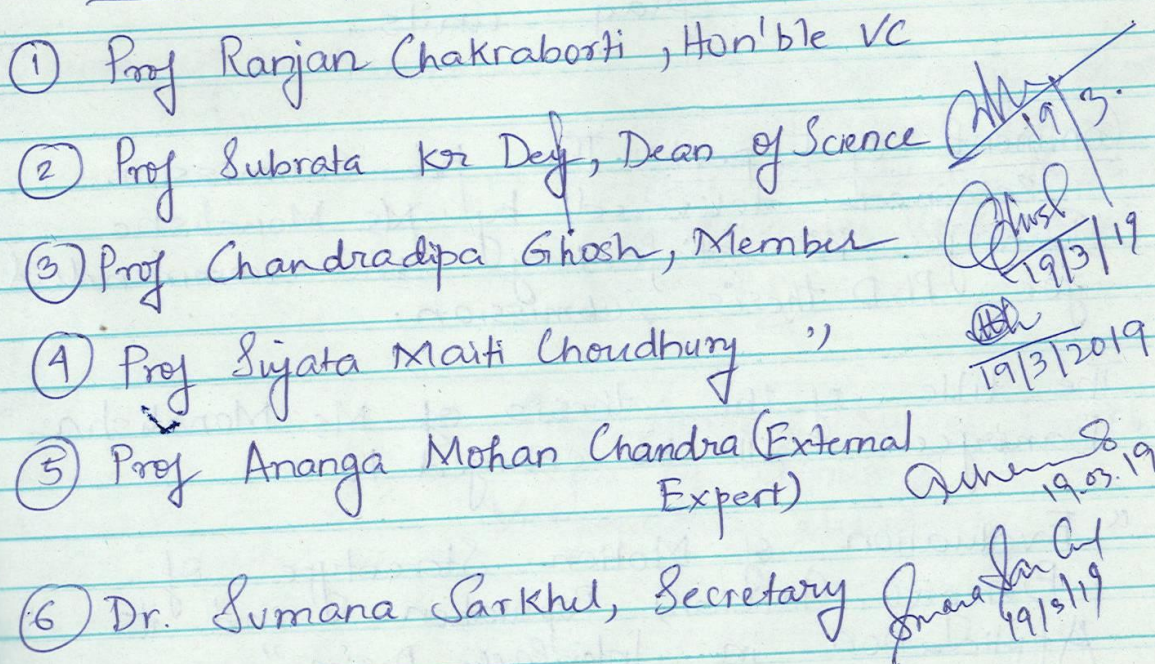 ① Prof Ranjan Chakraborti, Hon'ble VC
② Prof Subrata Kr Dey, Dean of Science 19/3.
③ Prof Chandradipa Ghosh, Member. Ghosh 19/3/19
④ Prof Sujata Maiti Choudhury " 19/3/2019
⑤ Prof Ananga Mohan Chandra (External
Expert) 19.03.19
⑥ Dr. Sumana Sarkhel, Secretary 19/3/19